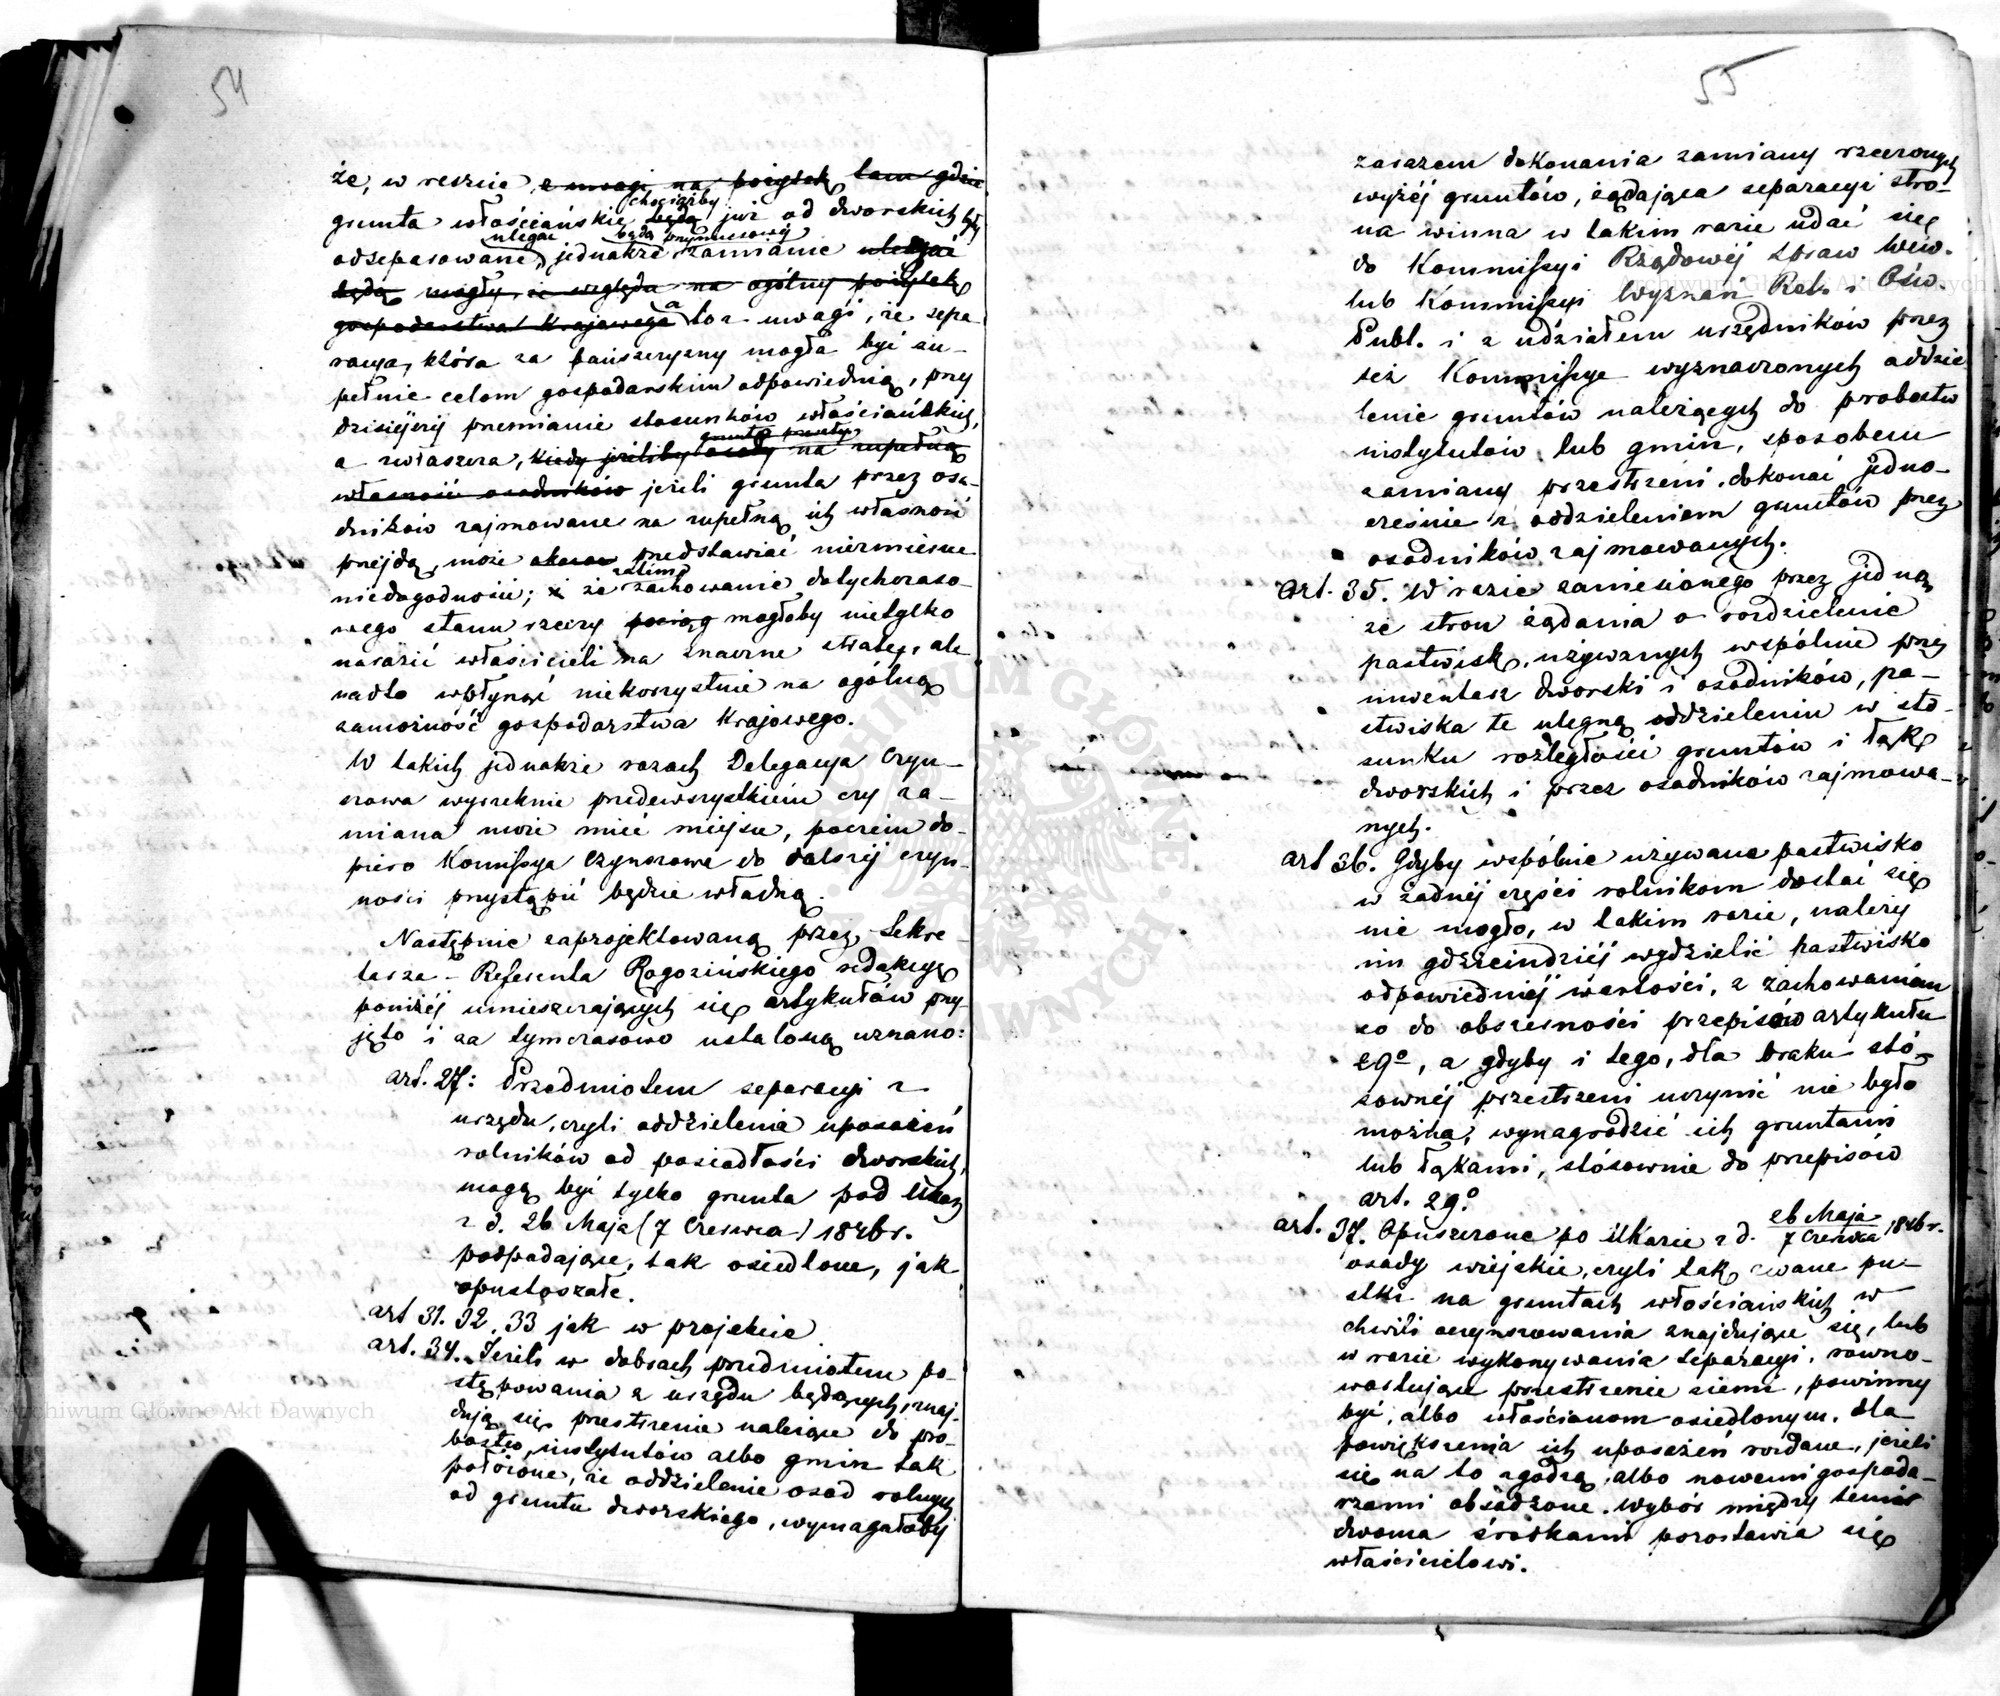 54
że, w reszcie, z uwagi na pożytek tam gdzie
chociażby
grunta włościańskie będą już od dworskich były
ulegać będą przymusowej
odseparowane, jednakże zamianie ulegać
będą mogły, ze względu na ogólny pożytek
gospodarstwa Krajowego a to z uwagi, że sepa
racya, która za pańszczyzny mogła być zu-
pełnie celom gospodarskim odpowiednią, przy
dzisiejszej przemianie stosunków włościańskich,
grunta przeszły
a zwłaszcza, kiedy jeśliby osady na zupełną
własność osadników jeżeli grunta przez osa-
dników zajmowane na zupełną ich własność
przejdą, może przedstawiać niezmierne
zatim
niedogodności; i że zachowanie dotychczaso-
wego stanu rzeczy pociąg mogłoby nietylko
narazić właścicieli na znaczne straty, ale
nadto wpłynąć niekorzystnie na ogólną
zamożność gospodarstwa Krajowego.
W takich jednakże razach Delegacya Czyn-
szowa wyrzeknie przedewszystkiem czy za-
miana może mieć miejsce, poczem do-
piero Kommissya Czynszowa do dalszej czyn-
ności przystąpić będzie władną.
Następnie zaprojektowaną przez Sekre-
tarza - Referenta Rogozińskiego redakcyę
poniżej umieszczających się artykułów przy-
jęto i za tymczasowo ustaloną uznano:
art. 27: Przedmiotem separacyi z
urzędu, czyli oddzielenia uposażeń
rolników od posiadłości dworskich,
mogą być tylko grunta pod Ukaz
z d. 26 Maja (7 Czerwca) 1846 r.
podpadające, tak osiedlone, jak
opustoszałe.
art 31. 32, 33 jak w projekcie
art. 34. Jeżeli w dobrach przedmiotem po-
stępowania z urzędu będących, znaj-
dują się przestrzenie należące do pro-
bostw, instytutów albo gmin tak
położone, że oddzielenie osad rolnych
od gruntu dworskiego, wymagałoby
55
zarazem dokonania zamiany rzeczonych
wyżej gruntów, żądająca separacyi stro-
na winna w takim razie udać się
do Kommissyi Rządowej Spraw Wew.
lub Kommissyi Wyznań Rel. i Ośw.
Publ. i z udziałem urzędników przez
też Kommissye wyznaczonych oddzie
lenie gruntów należących do probostw
instytutów lub gmin, sposobem
zamiany przestrzeni, dokonać jedno-
cześnie z oddzieleniem gruntów przez
osadników zajmowanych.
Art. 35. W razie zaniesionego przez jedną
ze stron żądania o rozdzielenie
pastwisk, używanych wspólnie przez
inwentarz dworski i osadników, pa-
stwiska te ulegną oddzieleniu w sto-
sunku rozległości gruntów i łąk
dworskich i przez osadników zajmowa-
nych.
art 36. Gdyby wspólnie używane pastwisko
w żadnej części rolnikom dostać się
nie mogło, w takim razie, należy
im gdzieindziej wydzielić pastwisko
odpowiedniej wartości, z zachowaniem
co do obszerności przepisów artykułu
29º, a gdyby i tego, dla braku stó-
sownej przestrzeni uczynić nie było
można, wynagrodzić ich gruntami
lub łąkami, stósownie do przepisów
art. 29º
art. 37. Opuszczone po Ukazie z d. 26 Maja / 7 Czerwca 1846 r.
osady wiejskie, czyli tak zwane pu-
stki na gruntach włościańskich w
chwili oczynszowania znajdujące się, lub
w razie wykonywania separacyi, równo-
ważące przestrzenie ziemi, powinny
być, albo włościanom osiedlonym, dla
powiększenia ich uposażeń rozdane, jeżeli
się na to zgodzą, albo nowemi gospoda-
rzami obsadzone. Wybór między temi
dwoma środkami pozostawia się
właścicielowi.